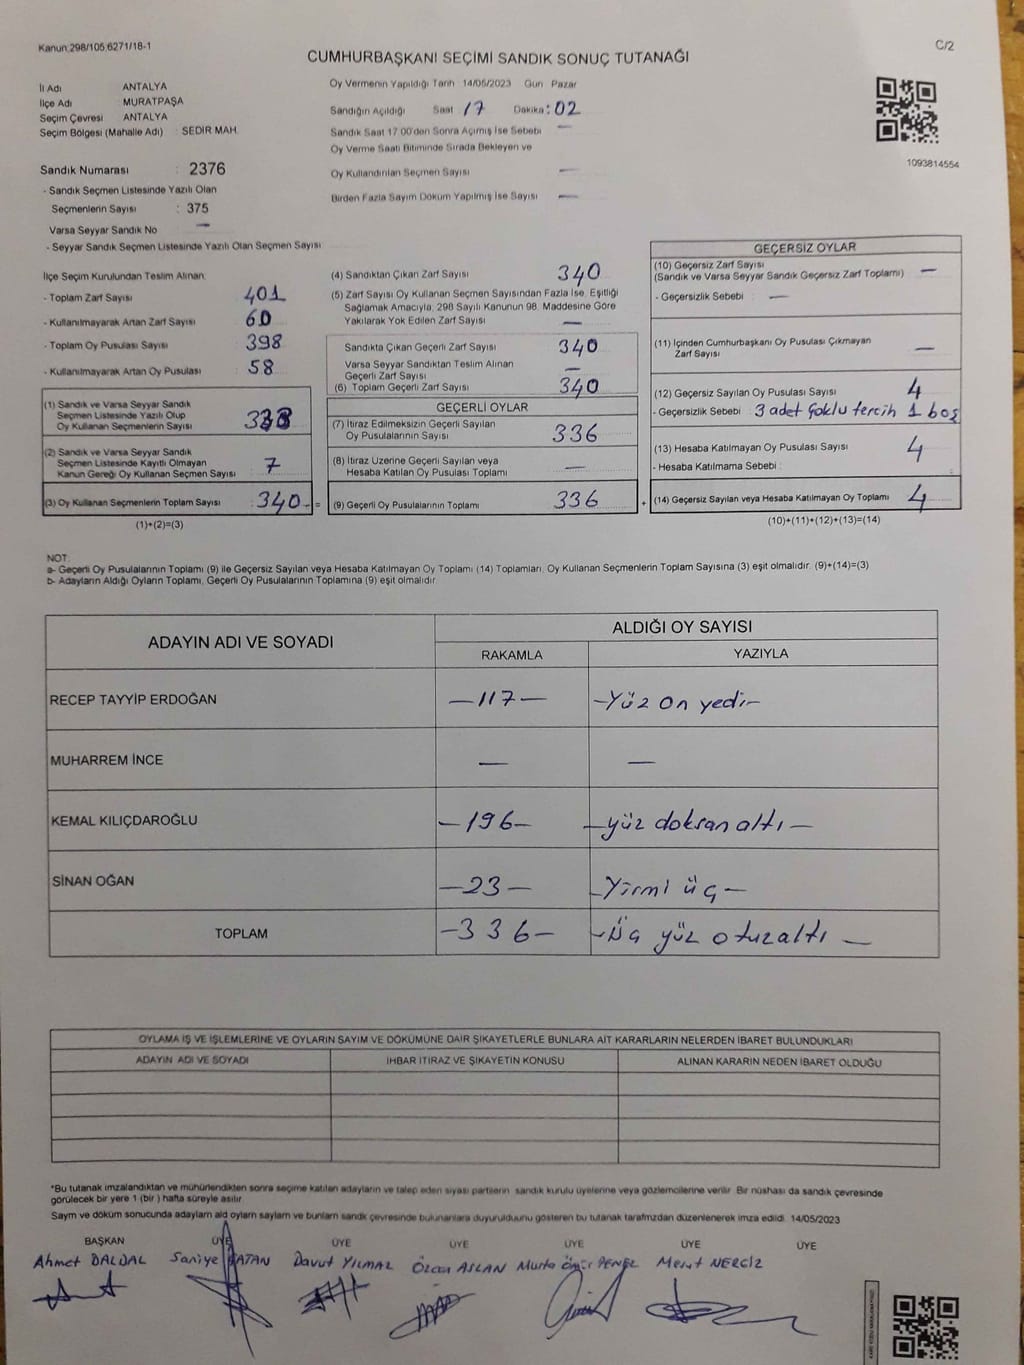 Kanun:298/105,6271/18-1
C/2
CUMHURBAŞKANI SEÇİMİ SANDIK SONUÇ TUTANAĞI
İl Adı ANTALYA
İlçe Adı MURATPAŞA
Seçim Çevresi ANTALYA
Seçim Bölgesi (Mahalle Adı) : SEDİR MAH.
Oy Vermenin Yapıldığı Tarih 14/05/2023 Gün Pazar
Sandığın Açıldığı Saat 17 Dakika: 02
Sandık Saat 17.00'den Sonra Açılmış İse Sebebi —
Oy Verme Saati Bitiminde Sırada Bekleyen ve
Oy Kullandırılan Seçmen Sayısı —
Birden Fazla Sayım Döküm Yapılmış İse Sayısı —
1093814554
Sandık Numarası : 2376
- Sandık Seçmen Listesinde Yazılı Olan
Seçmenlerin Sayısı : 375
Varsa Seyyar Sandık No —
- Seyyar Sandık Seçmen Listesinde Yazılı Olan Seçmen Sayısı
İlçe Seçim Kurulundan Teslim Alınan:
- Toplam Zarf Sayısı 401
- Kullanılmayarak Artan Zarf Sayısı 60
- Toplam Oy Pusulası Sayısı 398
- Kullanılmayarak Artan Oy Pusulası 58
(1) Sandık ve Varsa Seyyar Sandık
Seçmen Listesinde Yazılı Olup
Oy Kullanan Seçmenlerin Sayısı
(2) Sandık ve Varsa Seyyar Sandık
Seçmen Listesinde Kayıtlı Olmayan
Kanun Gereği Oy Kullanan Seçmen Sayısı 7
(3) Oy Kullanan Seçmenlerin Toplam Sayısı 340 =
(1)+(2)=(3)
(4) Sandıktan Çıkan Zarf Sayısı 340
(5) Zarf Sayısı Oy Kullanan Seçmen Sayısından Fazla İse, Eşitliği
Sağlamak Amacıyla, 298 Sayılı Kanunun 98. Maddesine Göre
Yakılarak Yok Edilen Zarf Sayısı —
Sandıkta Çıkan Geçerli Zarf Sayısı 340
Varsa Seyyar Sandıktan Teslim Alınan
Geçerli Zarf Sayısı —
(6) Toplam Geçerli Zarf Sayısı 340
GEÇERLİ OYLAR
(7) İtiraz Edilmeksizin Geçerli Sayılan
Oy Pusulalarının Sayısı 336
(8) İtiraz Üzerine Geçerli Sayılan veya
Hesaba Katılan Oy Pusulası Toplamı —
(9) Geçerli Oy Pusulalarının Toplamı 336 +
GEÇERSİZ OYLAR
(10) Geçersiz Zarf Sayısı
(Sandık ve Varsa Seyyar Sandık Geçersiz Zarf Toplamı) —
- Geçersizlik Sebebi : —
(11) İçinden Cumhurbaşkanı Oy Pusulası Çıkmayan
Zarf Sayısı —
(12) Geçersiz Sayılan Oy Pusulası Sayısı 4
- Geçersizlik Sebebi : 3 adet çoklu tercih 1 boş
(13) Hesaba Katılmayan Oy Pusulası Sayısı 4
- Hesaba Katılmama Sebebi :
(14) Geçersiz Sayılan veya Hesaba Katılmayan Oy Toplamı 4
(10)+(11)+(12)+(13)=(14)
NOT:
a- Geçerli Oy Pusulalarının Toplamı (9) ile Geçersiz Sayılan veya Hesaba Katılmayan Oy Toplamı (14) Toplamları, Oy Kullanan Seçmenlerin Toplam Sayısına (3) eşit olmalıdır. (9)+(14)=(3)
b- Adayların Aldığı Oyların Toplamı, Geçerli Oy Pusulalarının Toplamına (9) eşit olmalıdır.
ADAYIN ADI VE SOYADI
ALDIĞI OY SAYISI
RAKAMLA YAZIYLA
RECEP TAYYİP ERDOĞAN —117— —Yüz on yedi—
MUHARREM İNCE — —
KEMAL KILIÇDAROĞLU —196— —yüz doksan altı—
SİNAN OĞAN —23— —Yirmi üç—
TOPLAM —336— —Üç yüz otuzaltı—
OYLAMA İŞ VE İŞLEMLERİNE VE OYLARIN SAYIM VE DÖKÜMÜNE DAİR ŞİKAYETLERLE BUNLARA AİT KARARLARIN NELERDEN İBARET BULUNDUKLARI
ADAYIN ADI VE SOYADI İHBAR İTİRAZ VE ŞİKAYETİN KONUSU ALINAN KARARIN NEDEN İBARET OLDUĞU
*Bu tutanak imzalandıktan ve mühürlendikten sonra seçime katılan adayların ve talep eden siyasi partilerin sandık kurulu üyelerine veya gözlemcilerine verilir. Bir nüshası da sandık çevresinde
görülecek bir yere 1 (bir) hafta süreyle asılır.
Sayım ve döküm sonucunda adayların aldığı oyların sayıları ve bunların sandık çevresinde bulunanlara duyurulduğunu gösteren bu tutanak tarafımızdan düzenlenerek imza edildi. 14/05/2023
BAŞKAN ÜYE ÜYE ÜYE ÜYE ÜYE ÜYE
Ahmet DALDAL Saniye BATAN Davut YILMAZ Özcan ASLAN Murta Mesut NERGİZ